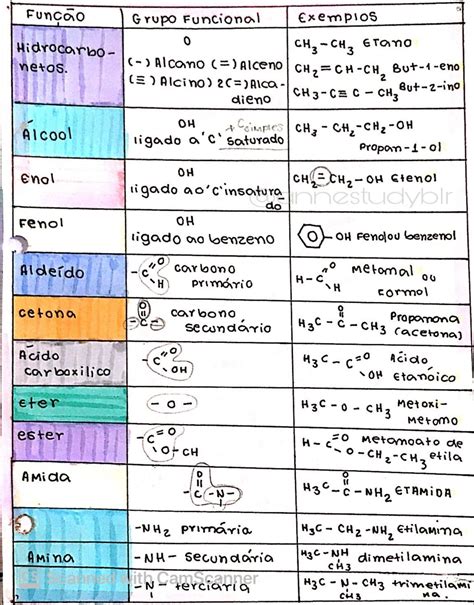 Função Grupo Funcional Exemplos
Hidrocarbo-
netos.
O
(-) Alcano (=) Alceno
(≡) Alcino) 2(=) Alca-
dieno
CH3-CH3 Etano
CH2=CH-CH2 But-1-eno
CH3-C≡C-CH3 But-2-ino
Álcool
OH + Simples
ligado a 'C' saturado
CH3-CH2-CH2-OH
Propan-1-ol
Enol
OH
ligado ao 'C' insatura
do
CH2=CH2-OH Etenol
Fenol
OH
ligado ao benzeno
O -OH Fenol ou benzenol
Aldeído
-C=O H carbono
primário
H-C=O H metamal ou
formol
cetona
O
-C- carbono
secundário
O
H3C-C-CH3 Propamona
(acetona)
Ácido
carboxílico
-C=O OH
H3C-C=O OH Ácido
Etanóico
Eter
-O-
H3C-O-CH3 metoxi-
metomo
ester
-C=O
O-CH
H-C=O metamoato de
O-CH2-CH3 etila
Amida
O
-C-N-
O
H3C-C-NH2 ETAMIDA
Amina
-NH2 primária
H3C-CH2-NH2 etilamina
-NH- secundária
H3C-NH
CH3 dimetilamina
-N- terciária
H3C-N-CH3 trimetilami
CH3 na.
Scanned with CamScanner